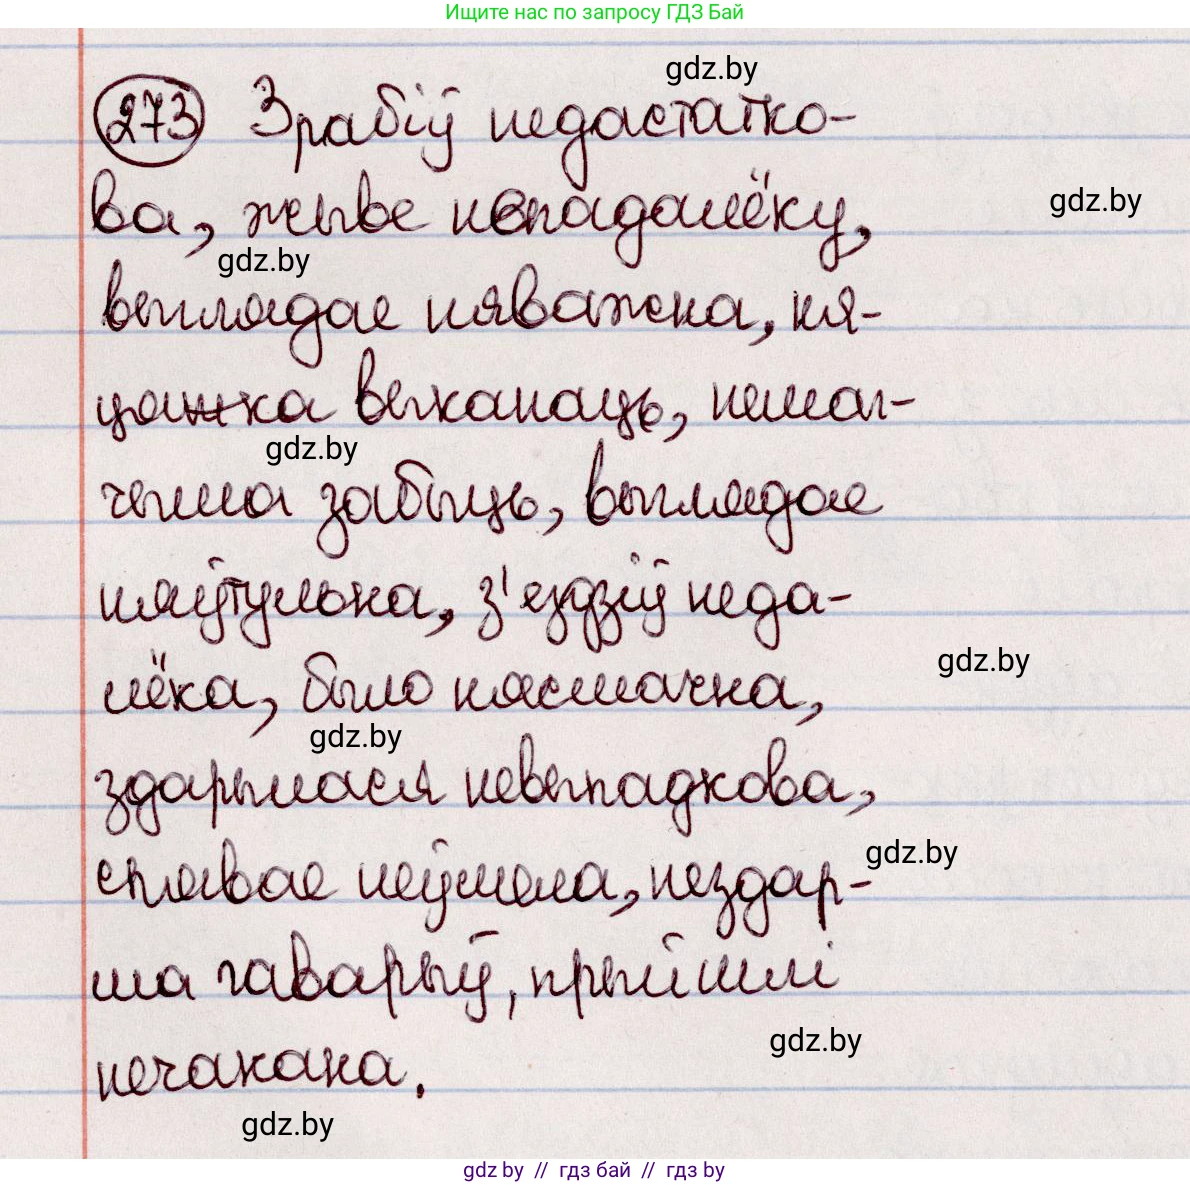 Ищите нас по запросу ГДЗ Бай
gdz.by
273 Зрабіў недастатко-
ва, жыве непадалёку,
gdz.by
gdz.by
выглядае няважна, ня-
цяжка выканаць, немаг-
gdz.by
чыма забыць, выглядае
няўтульна, з'ездзіў неда-
лёка, было нясмачна,
gdz.by
gdz.by
здарылася невыпадкова,
спявае няўмела, нездар-
gdz.by
ма гаварыў, прыйшлі
нечакана.
gdz.by
gdz.by
gdz.by // гдз бай // гдз by